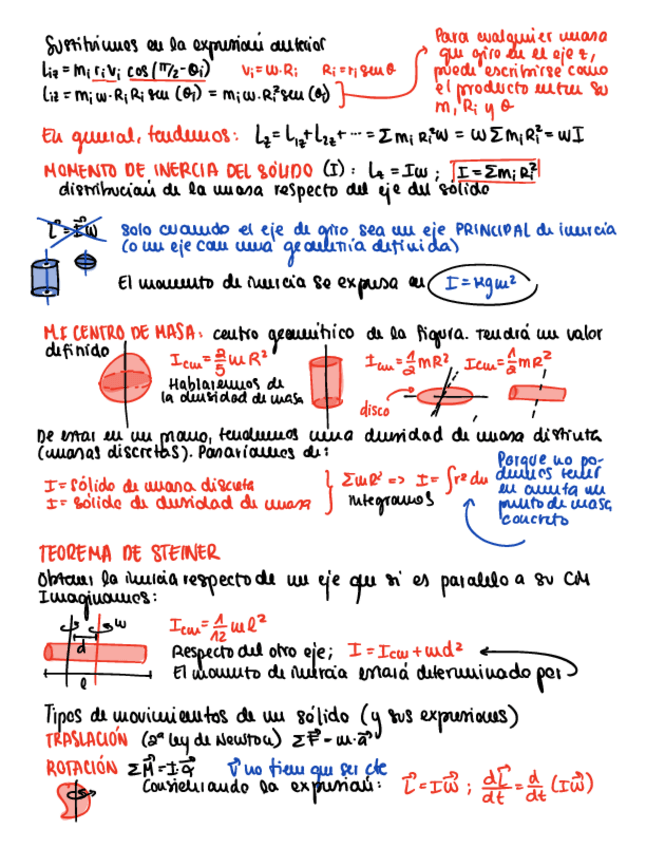 Sustituimos en la expresión anterior
Liz = mi ri vi cos(π/2-θi)   vi = w·Ri   Ri = ri sen θ
Liz = mi w·Ri Ri sen (θi) = mi w·Ri² sen (θi)
Para cualquier masa
que gire en el eje z,
puede escribirse como
el producto entre su
m, Ri y θ
En general, tendremos: Lz = L1z + L2z + ... = Σ mi Ri² w = w Σ mi Ri² = wI
MOMENTO DE INERCIA DEL SÓLIDO (I): Lz = Iw ; I = Σ mi Ri²
distribución de la masa respecto del eje del sólido
L⃗ = I w⃗
Solo cuando el eje de giro sea un eje PRINCIPAL de inercia
(o un eje con una geometría definida)
El momento de inercia se expresa en I = Kgm²
M.I CENTRO DE MASA: centro geométrico de la figura. Tendrá un valor
definido
Icm = 2/5 mR²
Hablaremos de
la densidad de masa
Icm = 1/2 mR²   Icm = 1/2 mR²
disco
De estar en un plano, tendremos una densidad de masa distinta
(masas discretas). Pasaríamos de:
I = sólido de masa discreta
I = sólido de densidad de masa
ΣmR² => I = ∫r² dm
integramos
Porque no po-
demos tener
en cuenta un
punto de masa
concreto
TEOREMA DE STEINER
Obtener la inercia respecto de un eje que si es paralelo a su CM
Imaginamos:
w
d
l
Icm = 1/12 ml²
Respecto del otro eje; I = Icm + md²
El momento de inercia estará determinado por
Tipos de movimientos de un sólido (y sus expresiones)
TRASLACIÓN (2ª ley de Newton) ΣF⃗ = m·a⃗
ROTACIÓN ΣM⃗ = I·α⃗   v⃗ no tiene que ser cte
Considerando la expresión: L⃗ = I w⃗ ; dL⃗/dt = d/dt (I w⃗)